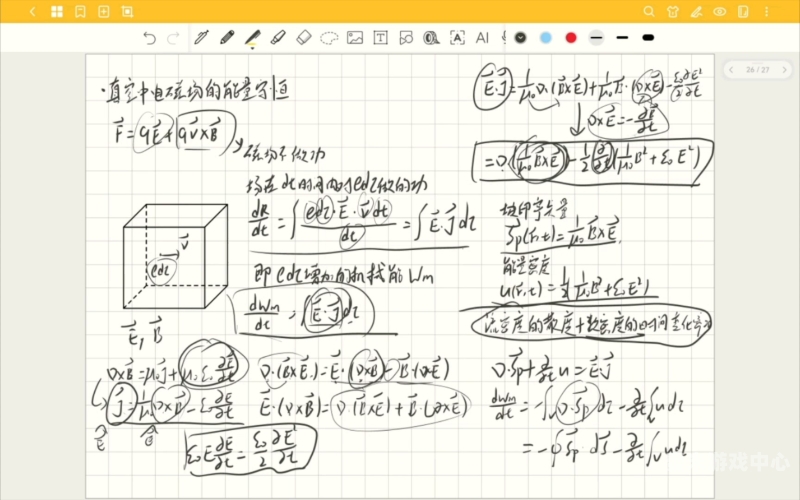 26 / 27
·真空中电磁场的能量守恒
F⃗ = qE⃗ + qv⃗×B⃗
↘磁场不做功
场在dt的时间内对ρdτ做的功
dR/dt = ∫ ρdτ·E⃗·v⃗dt / dt = ∫E⃗·J⃗dτ
ρdτ
v⃗
E⃗, B⃗
即ρdτ增加的机械能Wm
dWm/dt = ∫E⃗·J⃗dτ
∇×B⃗ = μ₀J⃗ + μ₀ε₀ ∂E⃗/∂t
∇·(B⃗×E⃗) = E⃗·(∇×B⃗) - B⃗·(∇×E⃗)
J⃗ = 1/μ₀ ∇×B⃗ - ε₀ ∂E⃗/∂t
E⃗·(∇×B⃗) = ∇·(B⃗×E⃗) + B⃗·(∇×E⃗)
ε₀E⃗ ∂E⃗/∂t = ε₀/2 ∂E²/∂t
E⃗·J⃗ = 1/μ₀ ∇·(B⃗×E⃗) + 1/μ₀ B⃗·(∇×E⃗) - ε₀/2 ∂E²/∂t
↓ ∇×E⃗ = -∂B⃗/∂t
= ∇·(1/μ₀ B⃗×E⃗) - 1/2 ∂/∂t (1/μ₀ B² + ε₀E²)
坡印亭矢量
S⃗p(r⃗,t) = 1/μ₀ B⃗×E⃗
能量密度
u(r⃗,t) = 1/2 (1/μ₀ B² + ε₀E²)
流密度的散度+数密度的时间变化率
∇·S⃗p + ∂/∂t u = E⃗·J⃗
dWm/dt = -∫ᵥ∇·S⃗p dτ - ∂/∂t ∫ᵥ u dτ
= -∮S⃗p·dS⃗ - ∂/∂t ∫ᵥ u dτ
游戏中心